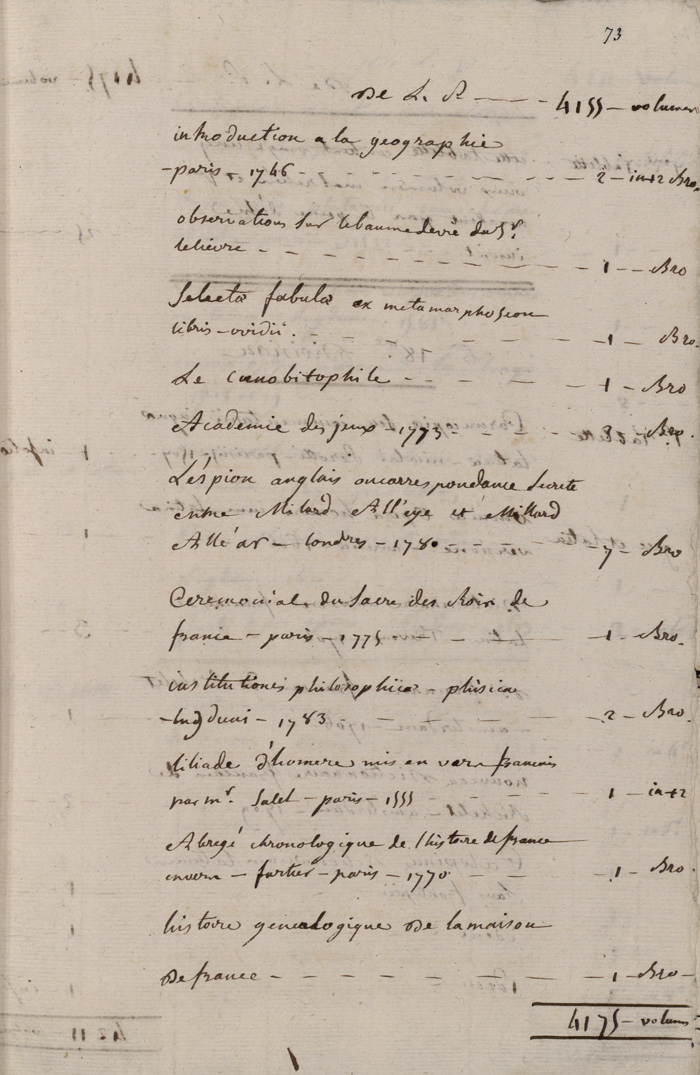 73
De L. P. — - 4155 — volumes
introduction a la geographie
-paris - 1746 - - - - - - - - 2 - in-12 Bro.
observations sur lebaumedevie du Sr.
lelievre - - - - - - - - 1 - - Bro
Selecta fabula ex metamorphoseon
libris - ovidii. - - - - - - - 1 - Bro.
Le Cœnobitophile - - - - - 1 - Bro
Academie des jeux - 1773 - - - - 3 - Bro.
L'éspion anglais oucorrespondance secrete
entre Milord All'eye et Millord
Alle'ar - londres - 1780 - - - - 7 - Bro
Ceremonial du Sacre des Rois de
france - paris - 1775 - - - - 1 - Bro.
institutiones philosophiiæ - phisica
- 1783 - - - - - 2 - Bro.
liliade d'homere mis en vers français
par mr. Salel - paris - 1555 - - - 1 - in-12
Abregé chronologique de l'histoire de france
envers - fortier - paris - 1770 - - - 1 - Bro.
histoire genealogique De lamaison
De france - - - - - - - - 1 - Bro -
4175 - volums